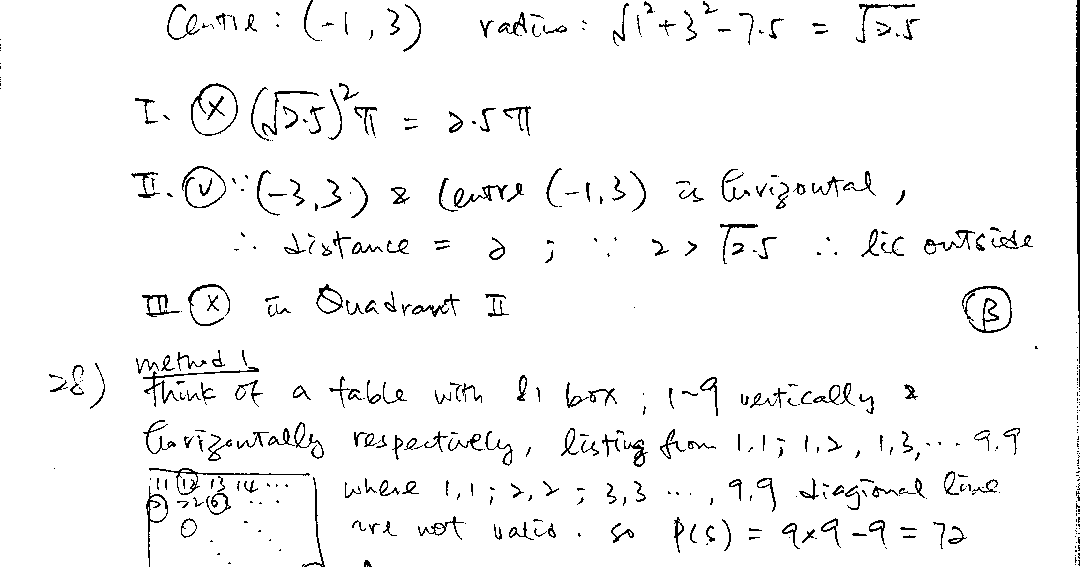 Centre : (-1, 3) radius : √1²+3²-7.5 = √2.5
I. ⓧ (√2.5)²π = 2.5π
II. ✓ ∵ (-3,3) & Centre (-1,3) is horizontal,
∴ distance = 2 ; ∵ 2 > √2.5 ∴ lie outside
III ⓧ in Quadrant II Ⓑ
28) method 1
think of a table with 81 box ; 1~9 vertically &
horizontally respectively, listing from 1,1 ; 1,2 , 1,3, ... 9.9
11 12 13 14 ... where 1,1 ; 2,2 ; 3,3 ..., 9,9 diagional line
22 are not valid. so P(S) = 9x9-9 = 72